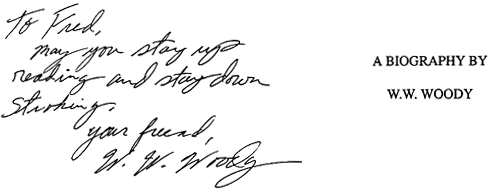 To Fred,
may you stay up
reading and stay down
stroking.
your friend,
W. W. Woody
A BIOGRAPHY BY
W.W. WOODY